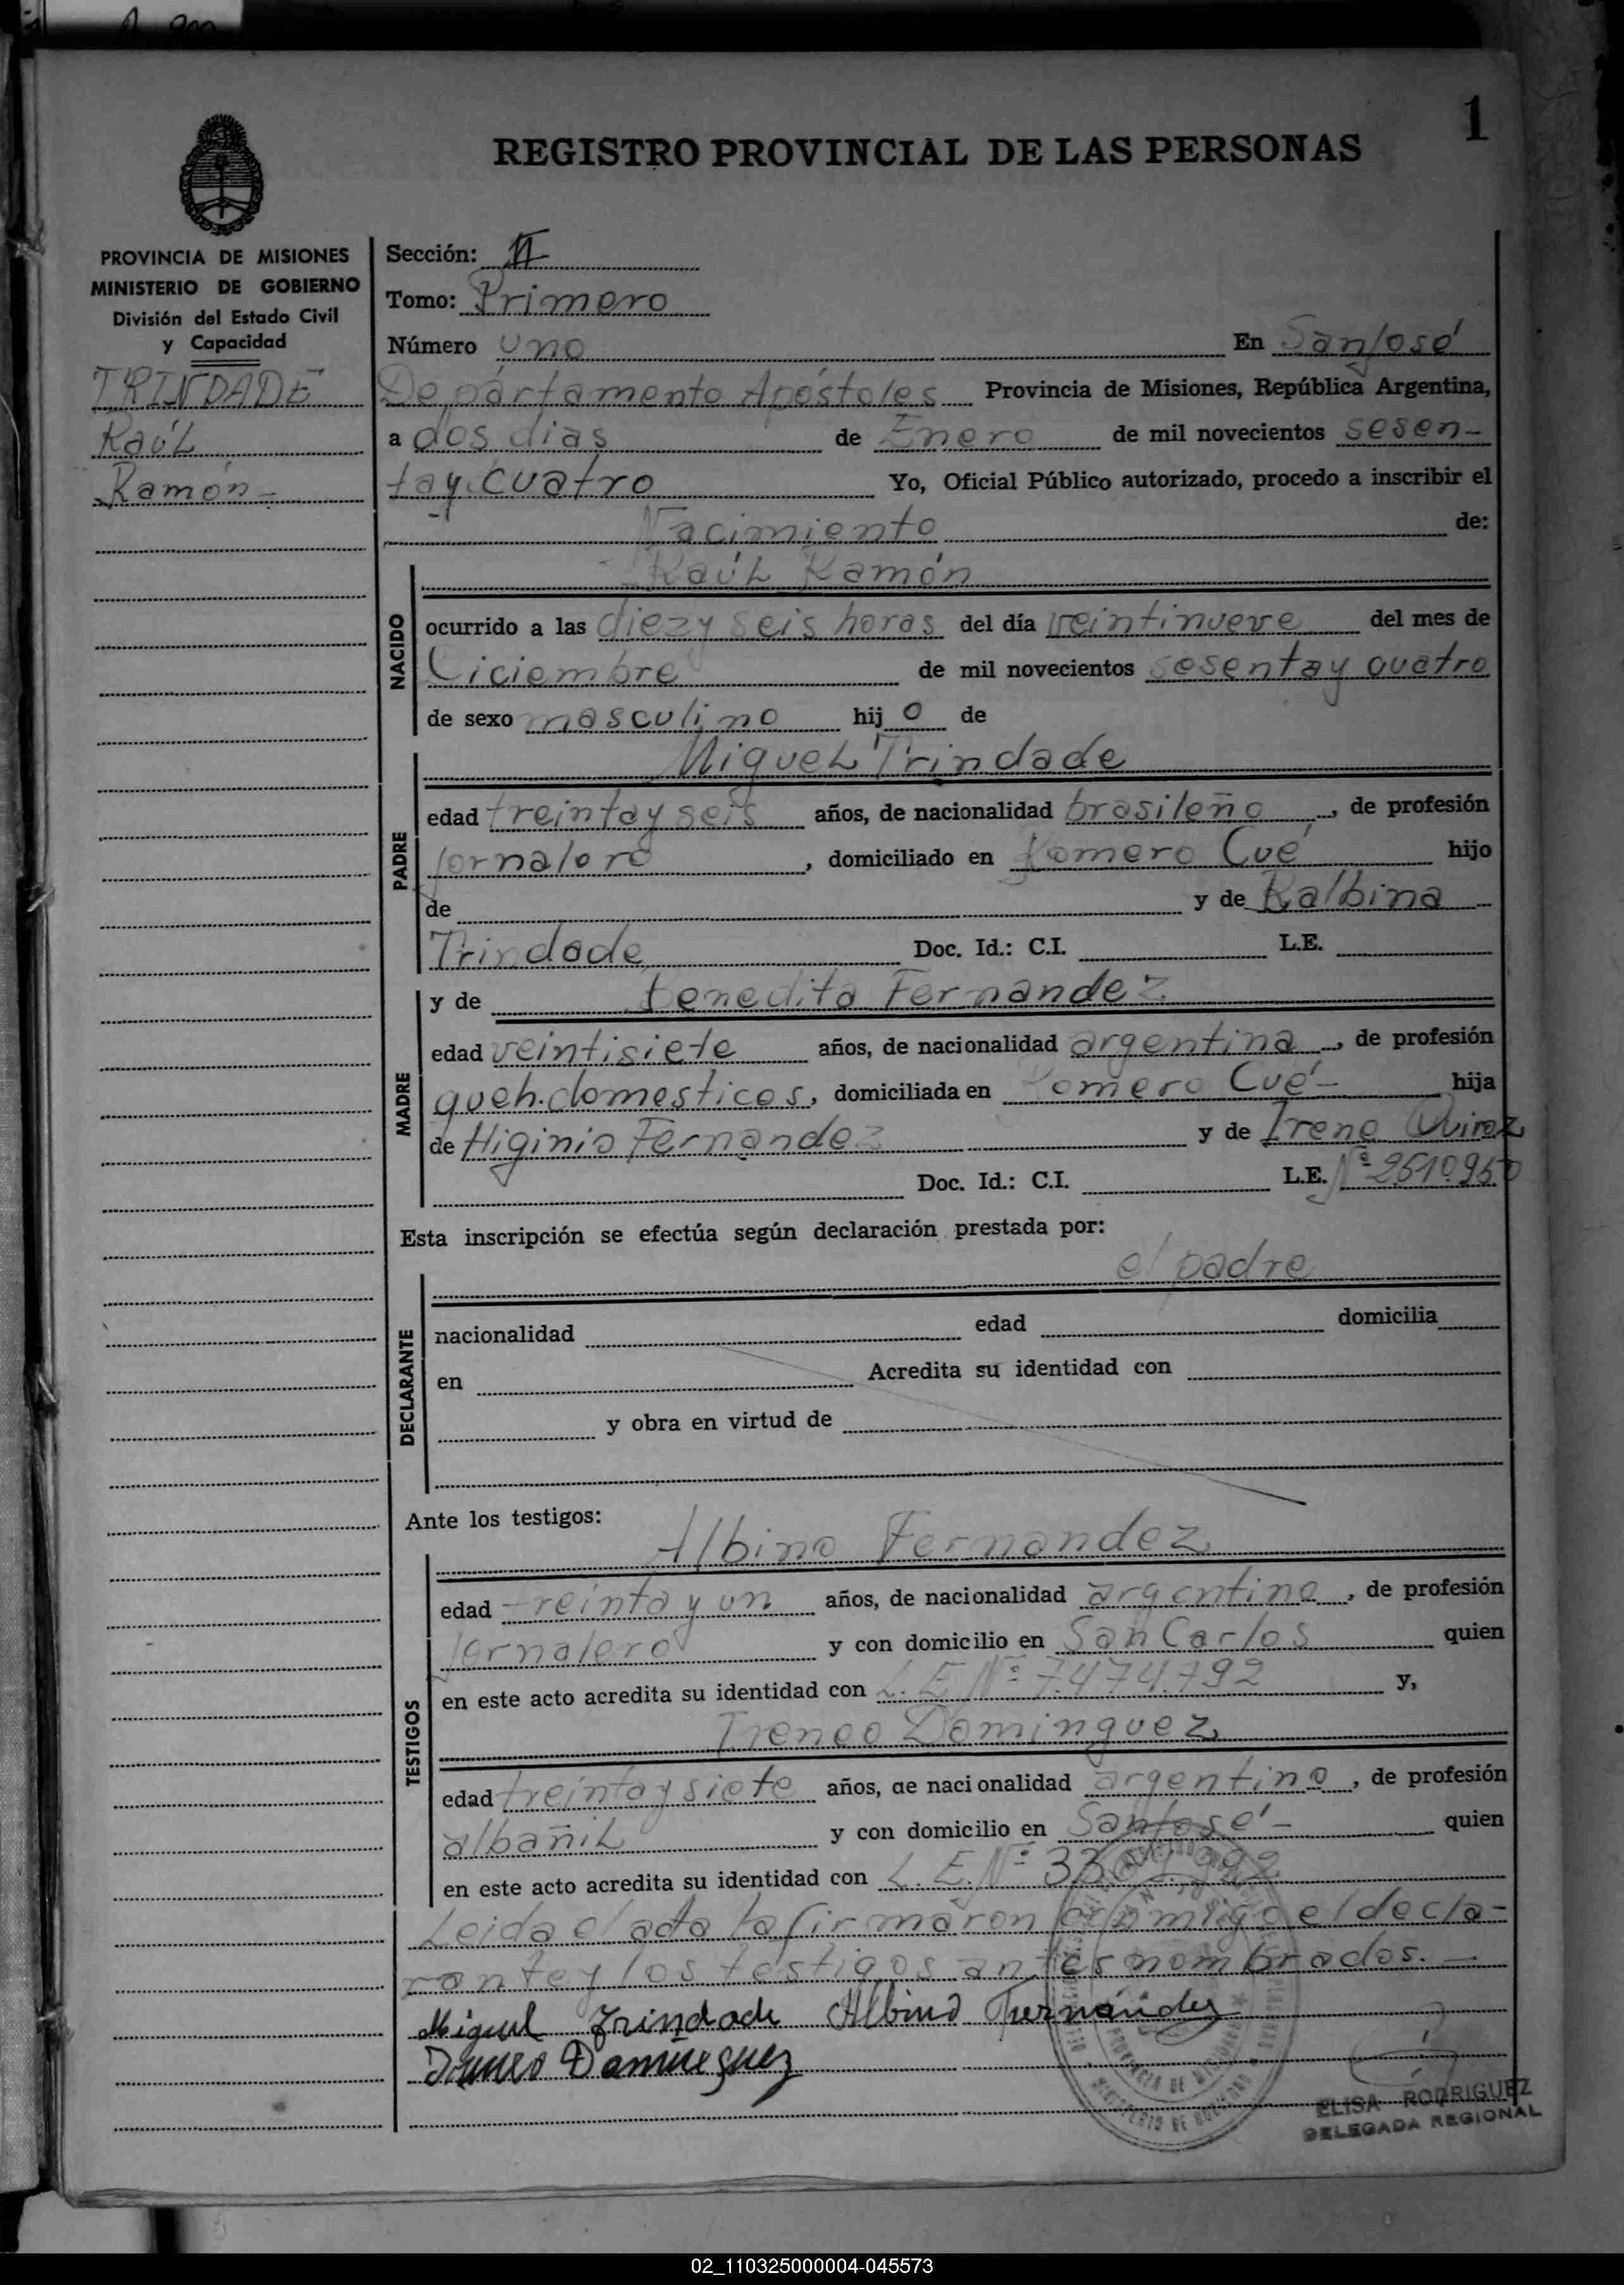 1
REGISTRO PROVINCIAL DE LAS PERSONAS
PROVINCIA DE MISIONES
MINISTERIO DE GOBIERNO
División del Estado Civil
y Capacidad
TRINDADE
Raúl
Ramón -
Sección: II
Tomo: Primero
Número uno En San José
Departamento Apóstoles Provincia de Misiones, República Argentina,
a dos dias de Enero de mil novecientos sesen-
tay cuatro Yo, Oficial Público autorizado, procedo a inscribir el
Nacimiento de:
Raúl Ramón
NACIDO
ocurrido a las diez y seis horas del día veintinueve del mes de
Diciembre de mil novecientos sesenta y cuatro
de sexo masculino hij o de
Miguel Trindade
PADRE
edad treinta y seis años, de nacionalidad brasileño, de profesión
jornalero, domiciliado en Romero Cué hijo
de y de Balbina
Trindade Doc. Id.: C.I. L.E.
MADRE
y de Benedita Fernandez
edad veintisiete años, de nacionalidad argentina, de profesión
queh. domesticos, domiciliada en Romero Cué - hija
de Higinio Fernandez y de Irene Quiroz
Doc. Id.: C.I. L.E. Nº 2610950
Esta inscripción se efectúa según declaración prestada por:
el padre
DECLARANTE
nacionalidad edad domicilia
en Acredita su identidad con
y obra en virtud de
Ante los testigos:
TESTIGOS
Albino Fernandez
edad treinta y un años, de nacionalidad argentino, de profesión
jornalero y con domicilio en San Carlos quien
en este acto acredita su identidad con L. E. Nº 7.474.792 y,
Ireneo Dominguez
edad treinta y siete años, de nacionalidad argentino, de profesión
albañil y con domicilio en San José - quien
en este acto acredita su identidad con L. E. Nº
Leida el acta la firmaron conmigo el decla-
rante y los testigos antes nombrados. -
Miguel Trindade Albino Fernández
Ireneo Domínguez
ELISA RODRIGUEZ
DELEGADA REGIONAL
02_110325000004-045573